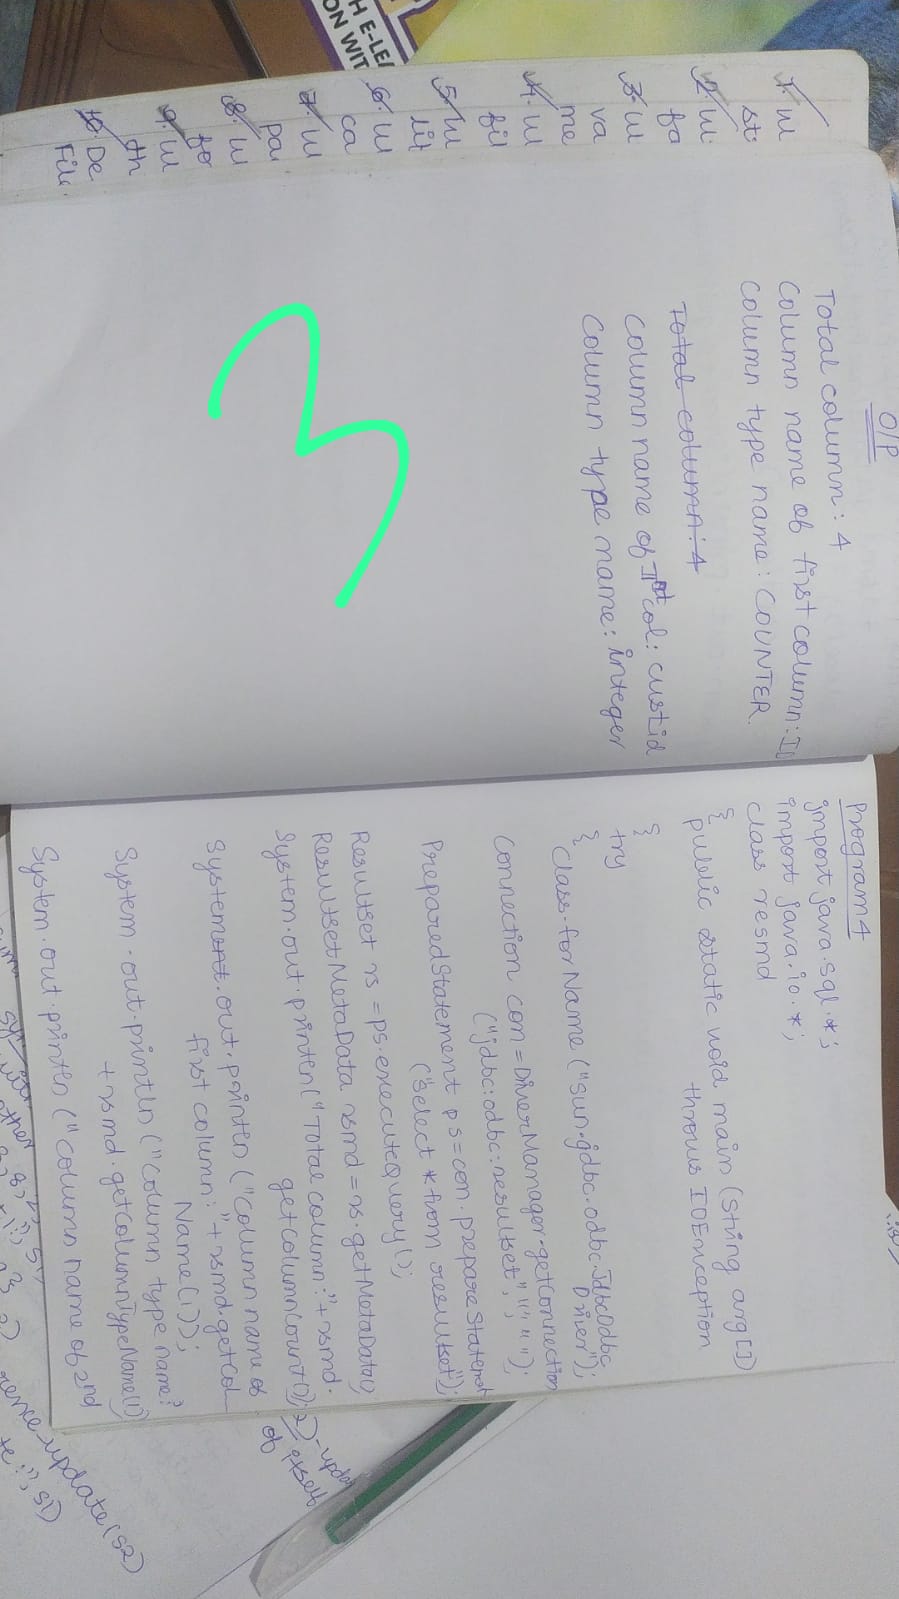 O/P
Total column: 4
Column name of first column: ID
Column type name: COUNTER.
Total column: 4
Column name of Ist col: custid
Column type name: integer
1. W
st
2. W
fa
3. W
va
me
4. W
fil
5. W
lit
6. W
ca
7. W
pa
8. W
fo
9. W
th
10. De
File
H E-LEA
ON WIT
Program 4
import java.sql.*;
import java.io.*;
class resmd
{
public static void main (String arg[])
throws IOException
{
try
{
Class.forName ("sun.jdbc.odbc.JdbcOdbc
Driver");
Connection con = DriverManager.getConnection
("jdbc:odbc:resultset", "", " ");
PreparedStatement ps = con.prepareStatemnt
("select * from resultset");
Resultset rs = ps.executeQuery();
ResultsetMetaData rsmd = rs.getMetaData()
System.out.println("Total column:"+rsmd.
getColumnCount());
System.out.println ("Column name of
first column:"+rsmd.getCol
Name(1));
System.out.println ("Column type name:"
+rsmd.getColumnTypeName(1)
System.out.println ("Column name of 2nd
2) - updat
of itself
rence-update(s2)
te:", s1)